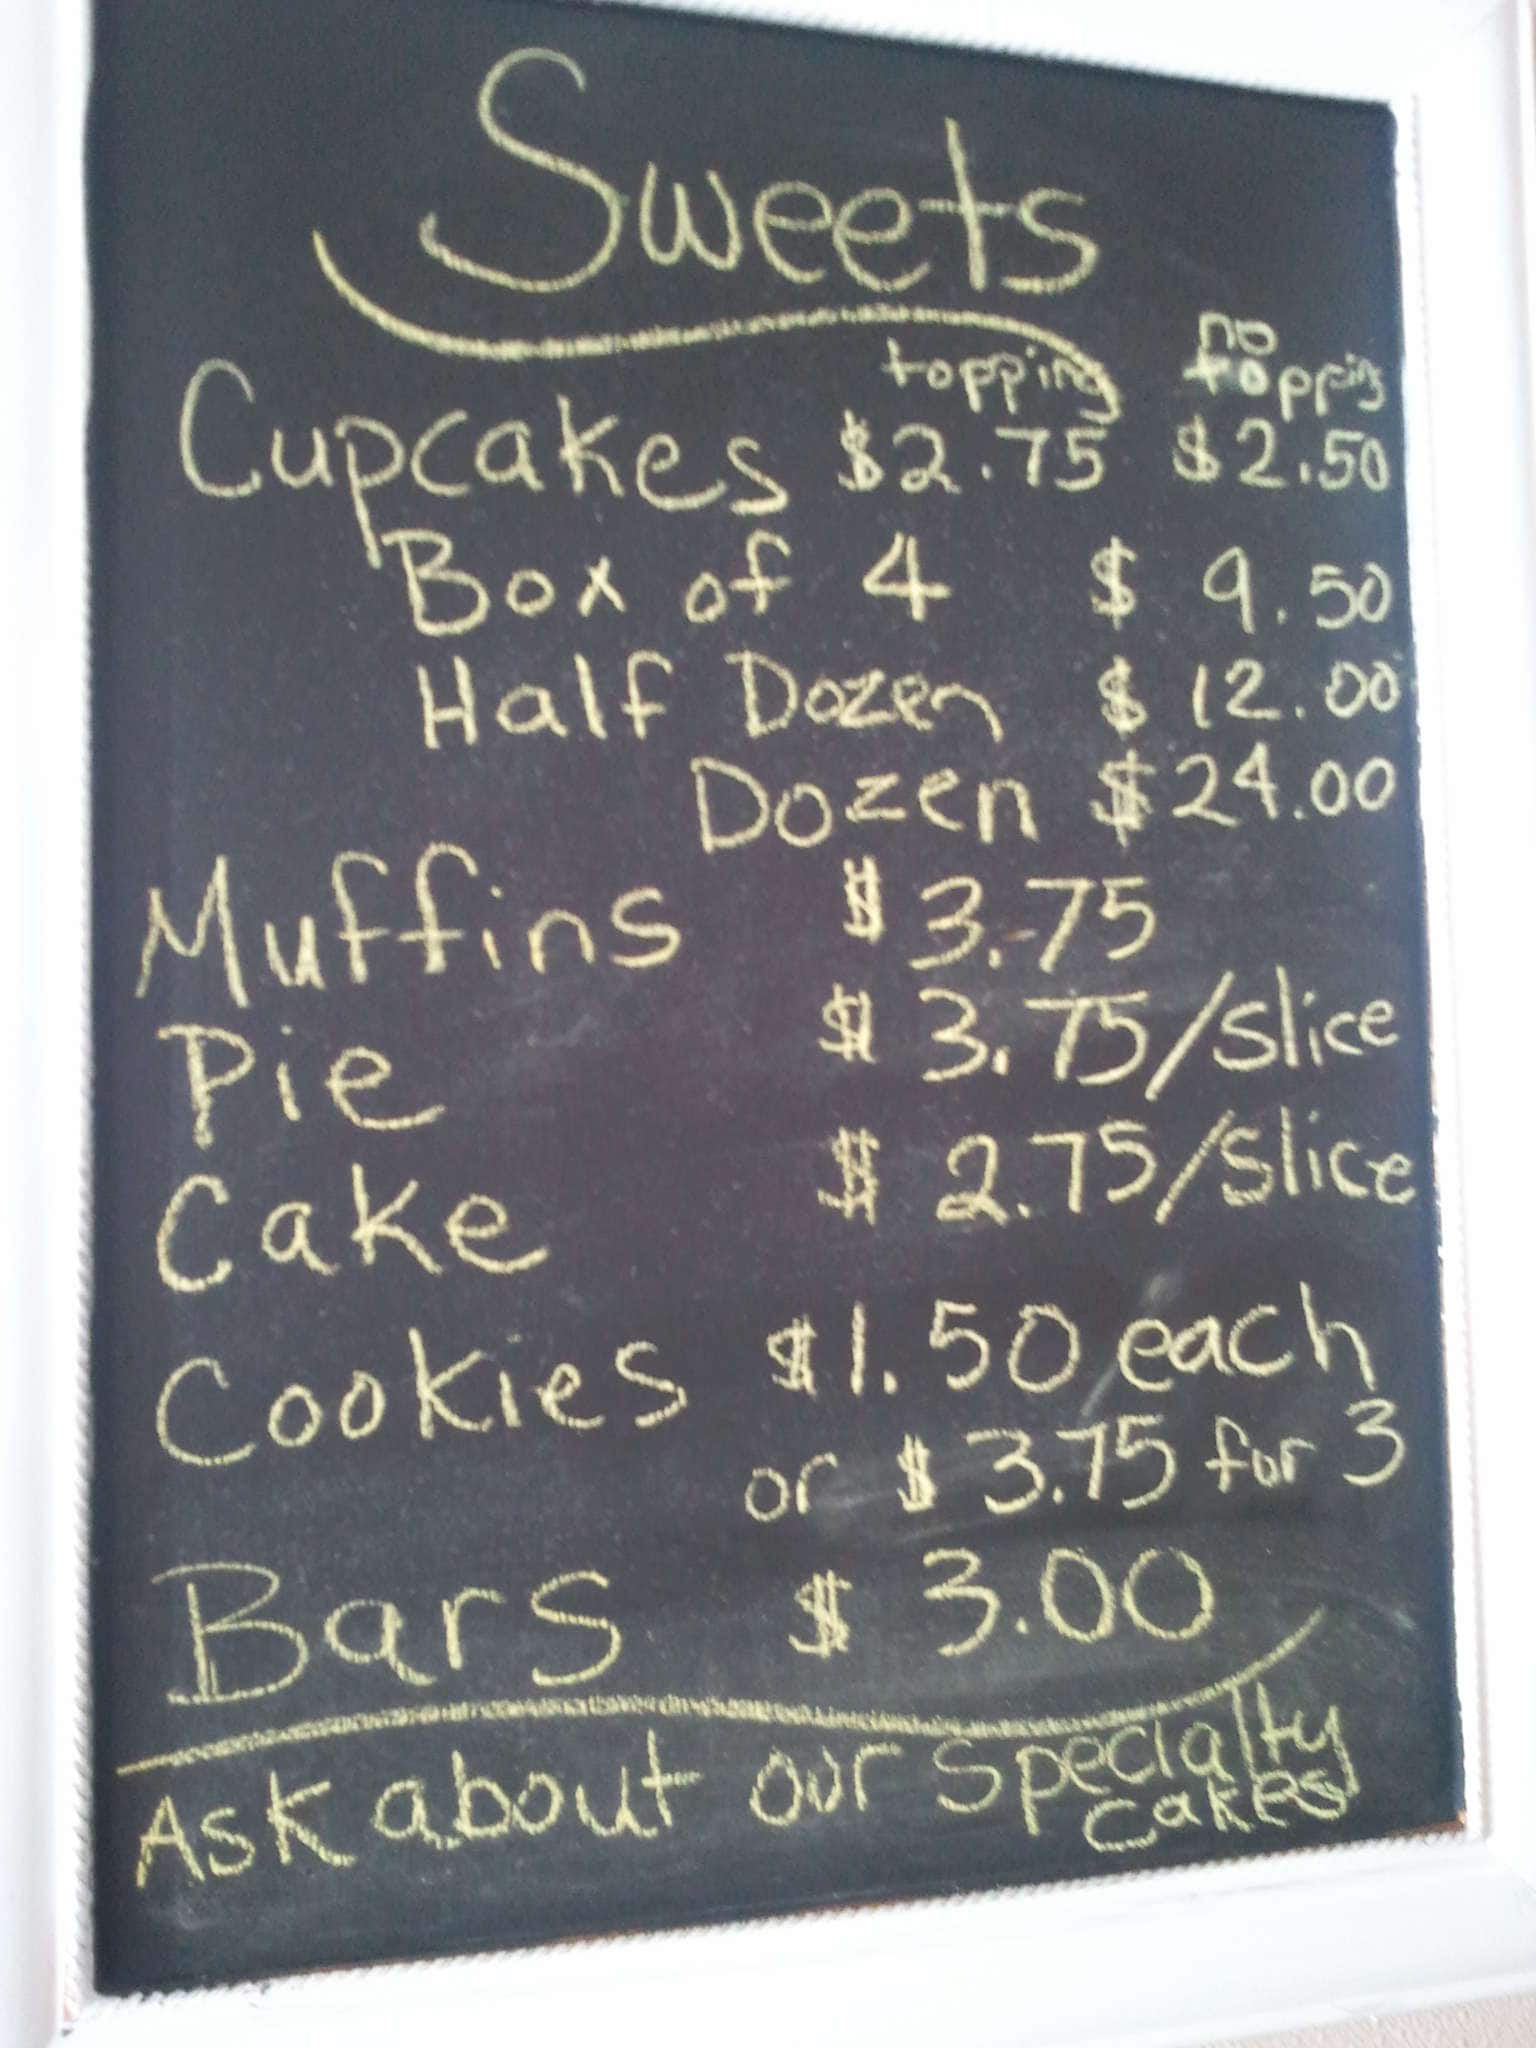 Sweets
topping no topping
Cupcakes $2.75 $2.50
Box of 4 $ 9.50
Half Dozen $ 12.00
Dozen $24.00
Muffins $ 3.75
Pie $ 3.75/slice
Cake $ 2.75/slice
Cookies $1.50 each
or $ 3.75 for 3
Bars $ 3.00
Ask about our Specialty
Cakes